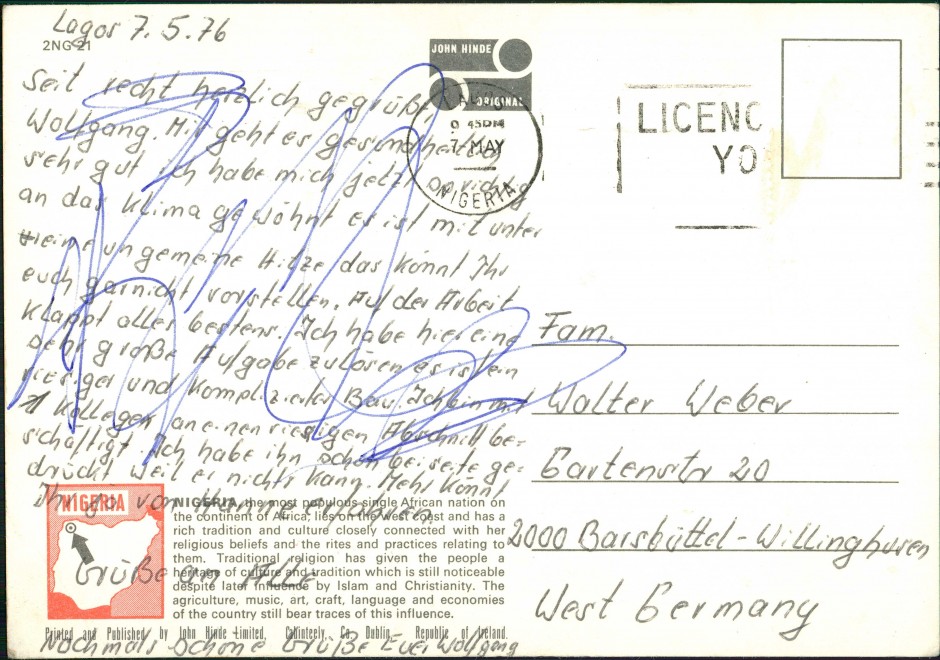 Lagos 7.5.76
2NG 21
Seit recht herzlich gegrüßt
Wolfgang. Mir geht es gesundheitlich
sehr gut ich habe mich jetzt richtig
an das Klima gewöhnt es ist mitunter
eine ungemeine Hitze das könnt Ihr
euch garnicht vorstellen. Auf der Arbeit
klappt alles bestens. Ich habe hier eine
sehr große Aufgabe zulösen es ist ein
riesiger und komplizierter Bau. Ich bin mit
1 Kollegen an einen riesigen Abschnitt be-
schäftigt. Ich habe ihn schon beiseite ge-
drückt weil er nichts kann. Mehr könnt
Ihr ja von
Grüße an Alle
Nochmals schöne Grüße Euer Wolfgang
NIGERIA
NIGERIA, the most populous single African nation on
the continent of Africa, lies on the west coast and has a
rich tradition and culture closely connected with her
religious beliefs and the rites and practices relating to
them. Traditional religion has given the people a
heritage of culture and tradition which is still noticeable
despite later influence by Islam and Christianity. The
agriculture, music, art, craft, language and economies
of the country still bear traces of this influence.
Printed and Published by John Hinde Limited, Cabinteely, Co. Dublin, Republic of Ireland.
JOHN HINDE
ORIGINAL
9 45PM
7 MAY
NIGERIA
LICENC
YO
Fam.
Walter Weber
Gartenstr 20
2000 Barsbüttel-Willinghusen
West Germany